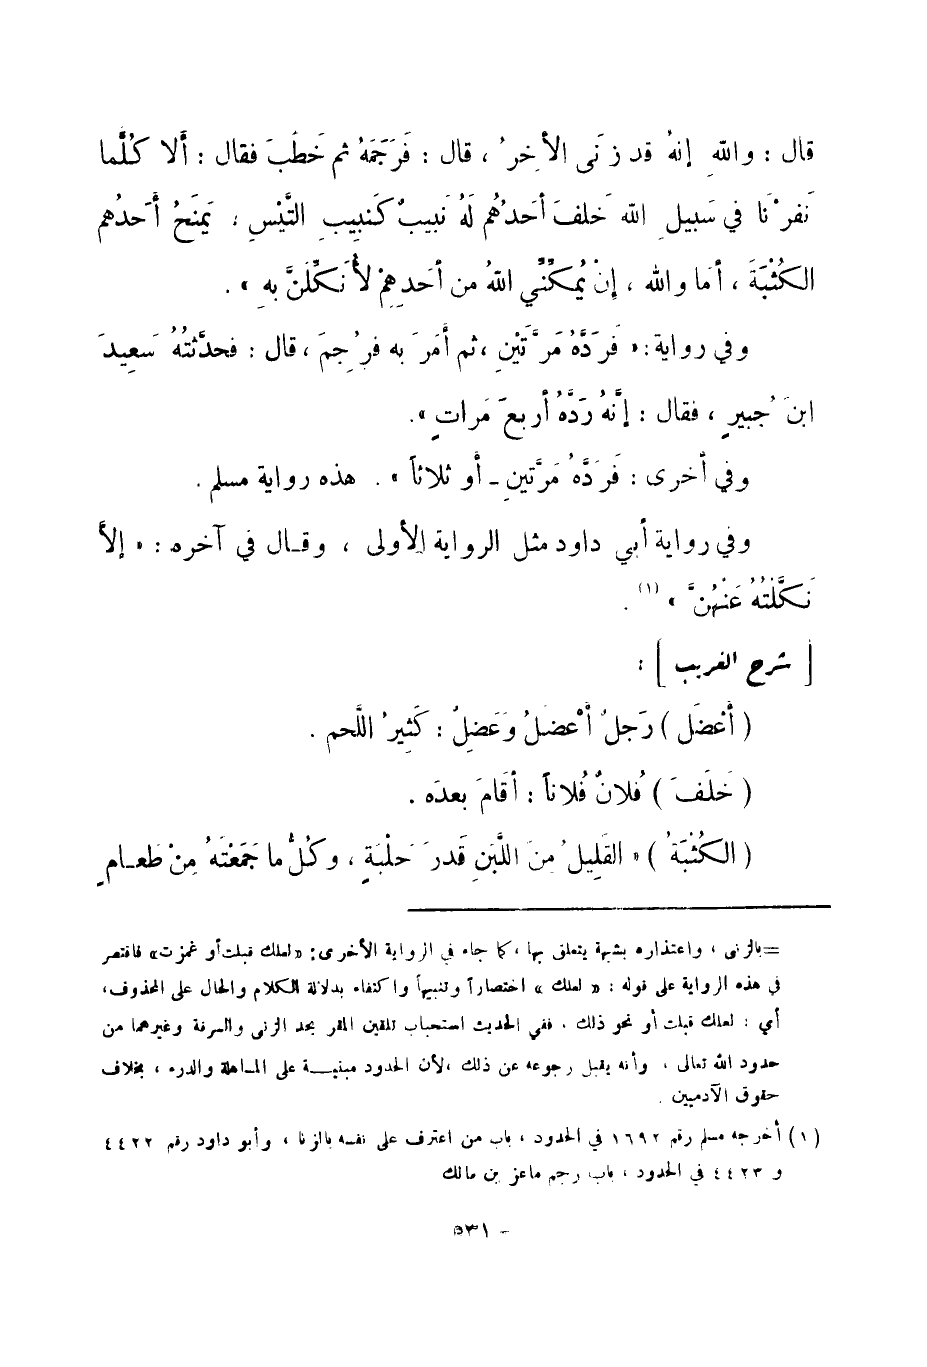 قال : واللهِ إنهُ قد زَنَى الأخِرُ ، قال : فَرَجَمَهُ ثم خَطَبَ فقال : أَلا كُلَّما
نَفَرْنَا في سَبيلِ الله خَلَفَ أَحَدُهُم لَهُ نَبيبٌ كَنَبِيبِ التَّيْسِ ، يَمنَحُ أَحَدُهم
الكُثْبَةَ ، أمَا والله ، إنْ يُمكِنِّي اللهُ من أَحَدِهِمْ لأُنَكِّلَنَّ بِهِ » .
وفي رواية : « فَرَدَّهُ مَرَّتَيْنِ ، ثم أَمَرَ به فَرُجِمَ ، قال : فحدَّثتُهُ سَعِيدَ
ابنَ جُبيرٍ ، فقال : إِنَّهُ رَدَّهُ أربعَ مَراتٍ » .
وفي أخرى : فَرَدَّهُ مَرَّتينِ ـ أو ثلاثاً » . هذه رواية مسلم .
وفي رواية أبي داود مثل الرواية الأولى ، وقـال في آخره : « إلاَّ
نَكَّلْتُهُ عَنْهُنَّ » (١) .
[ شرح الغريب ] :
( أَعْضَل ) رَجلٌ أَعْضلُ وَعَضِلٌ : كَثِيرُ اللَّحم .
( خَلَفَ ) فُلانٌ فُلاناً : أقَامَ بعدَه .
( الكُثْبَةُ ) « القَلِيلُ مِنَ اللَّبَنِ قَدرَ حَلْبَةٍ ، وكُلُّ ما جَمَعْتَهُ مِنْ طَعـامٍ
=بالزنى ، واعتذاره بشبهة يتعلق بها ، كما جاء في الرواية الأخرى : «لعلك قبلت أو غمزت» فاقتصر
في هذه الرواية على قوله : « لعلك » اختصاراً وتنبيهاً واكتفاء بدلالة الكلام والحال على المحذوف ،
أي : لعلك قبلت أو نحو ذلك . ففي الحديث استحباب تلقين المقر بحد الزنى والسرقة وغيرهما من
حدود الله تعالى ، وأنه يقبل رجوعه عن ذلك ، لأن الحدود مبنيـــة على المـاهلة والدرء ، بخلاف
حقوق الآدميين .
(١) أخرجه مسلم رقم ١٦٩٢ في الحدود ، باب من اعترف على نفسه بالزنا ، وأبو داود رقم ٤٤٢٢
و ٤٤٢٣ في الحدود ، باب رجم ماعز بن مالك
- ٥٣١